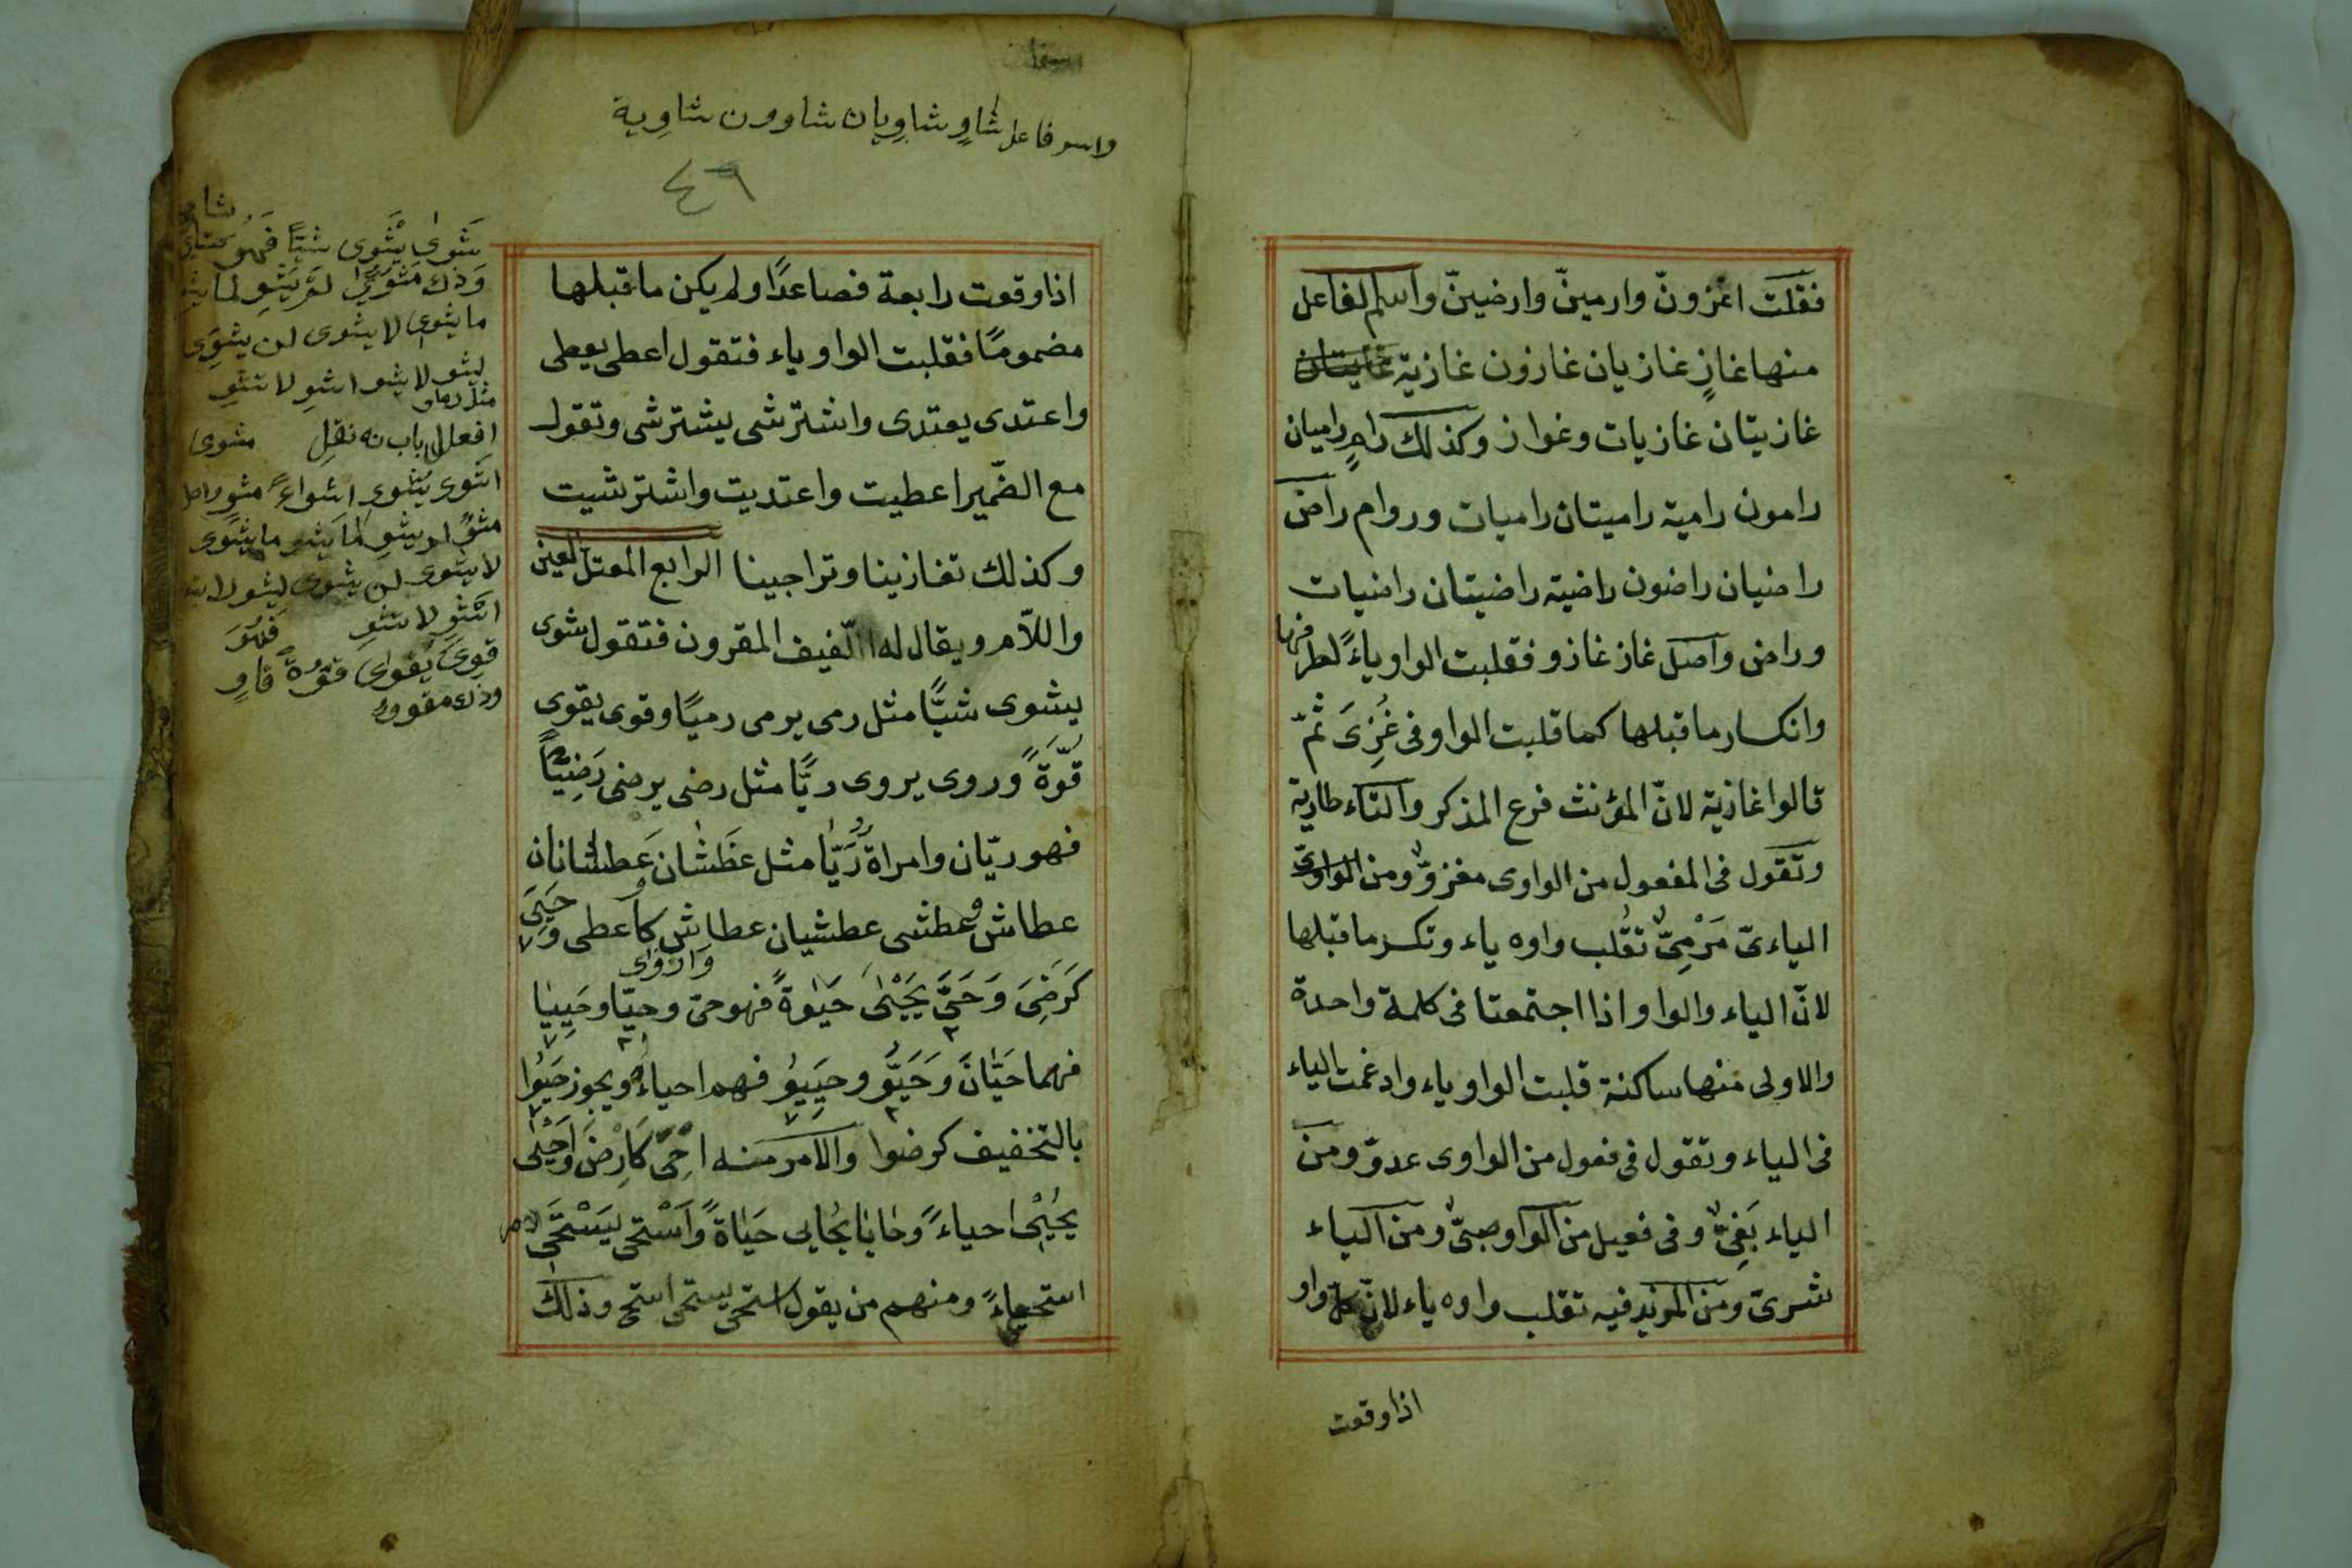 فقلت اغزونّ وارمينّ وارضينّ واسم الفاعل
منها غازٍ غازيان غازون غازية غازيتان
غازيتان غازيات وغواز وكذلك رامٍ راميان
رامون رامية راميتان راميات وروام راض
راضيان راضون راضية راضيتان راضيات
ورواض واصل غاز غازو فقلبت الواو ياءً لطرفها
وانكسار ما قبلها كما قلبت الواو فى غُزِىَ ثمّ
قالوا غازية لانّ المؤنث فرع المذكر والتاء طارية
وتقول فى المفعول من الواوى مغزوّ ومن الواوى
الياءىّ مَرْمِىٌّ تقلب واوه ياء وتكسر ما قبلها
لانّ الياء والواو اذا اجتمعتا فى كلمة واحدة
والاولى منها ساكنة قلبت الواو ياء وادغمت الياء
فى الياء وتقول فى فعول من الواوى عدوّ ومن
الياء بَغِىٌّ وفى فعيل من الواو صبىّ ومن الياء
شرىّ ومن المزيد فيه تقلب واوه ياء لانّ كل واو
اذا وقعت
واسم فاعل شاوٍ شاويان شاوون شاوية
٤٦
اذا وقعت رابعة فصاعدًا ولم يكن ما قبلها
مضمومًا فقلبت الواو ياء فتقول اعطى يعطى
واعتدى يعتدى واشترشى يشترشى وتقول
مع الضّمير اعطيت واعتديت واشترشيت
وكذلك تغازينا وتراجينا الرابع المعتل العين
واللاّم ويقال له اللّفيف المقرون فتقول شوى
يشوى شيًّا مثل رمى يرمى رميًا وقوى يقوى
قوّةً وروى يروى ريًّا مثل رضى يرضى رَضِيًّا
فهو ريّان وامراة رَيّا مثل عَطَشان عَطشانان
عطاش وعطشى عطشيان عطاش كاعطى وحَيِىَ
واروى
كَرَضِىَ وَحَىَّ يَحْيٰى حَيٰوةً فهو حىّ وحيّا وحَيِيَا
فهما حَيّانَ وَحَيُّو وحَيِيُو فهم احياءٌ ويجوز حَيُوا
بالتخفيف كرضوا والامر منه اِحْىَ كَارِضَ واَحْيٰى
يُحْيِى احياءً وحايا يُحايى حَيٰاةً واَسْتحى يَسْتَحْيى
استحياءً ومنهم من يقول استحى يستحى استح وذلك
شوى يشوى شيًّا فهو شاوٍ
وذاك مشوىّ لم يشو لما يشو
ما يشوى لا يشوى لن يشوى
ليشو لا يشو اشو لا تشو
افعال باب نقل مشوى
اشوى يشوى اشواءً مشو
مشوً لم يشو لما يشو ما يشوى
لا يشوى لن يشوى ليشو لا يشو
اشو لا تشو فهو
قوى يقوى قوّةً قاوٍ
وذاك مقووّ